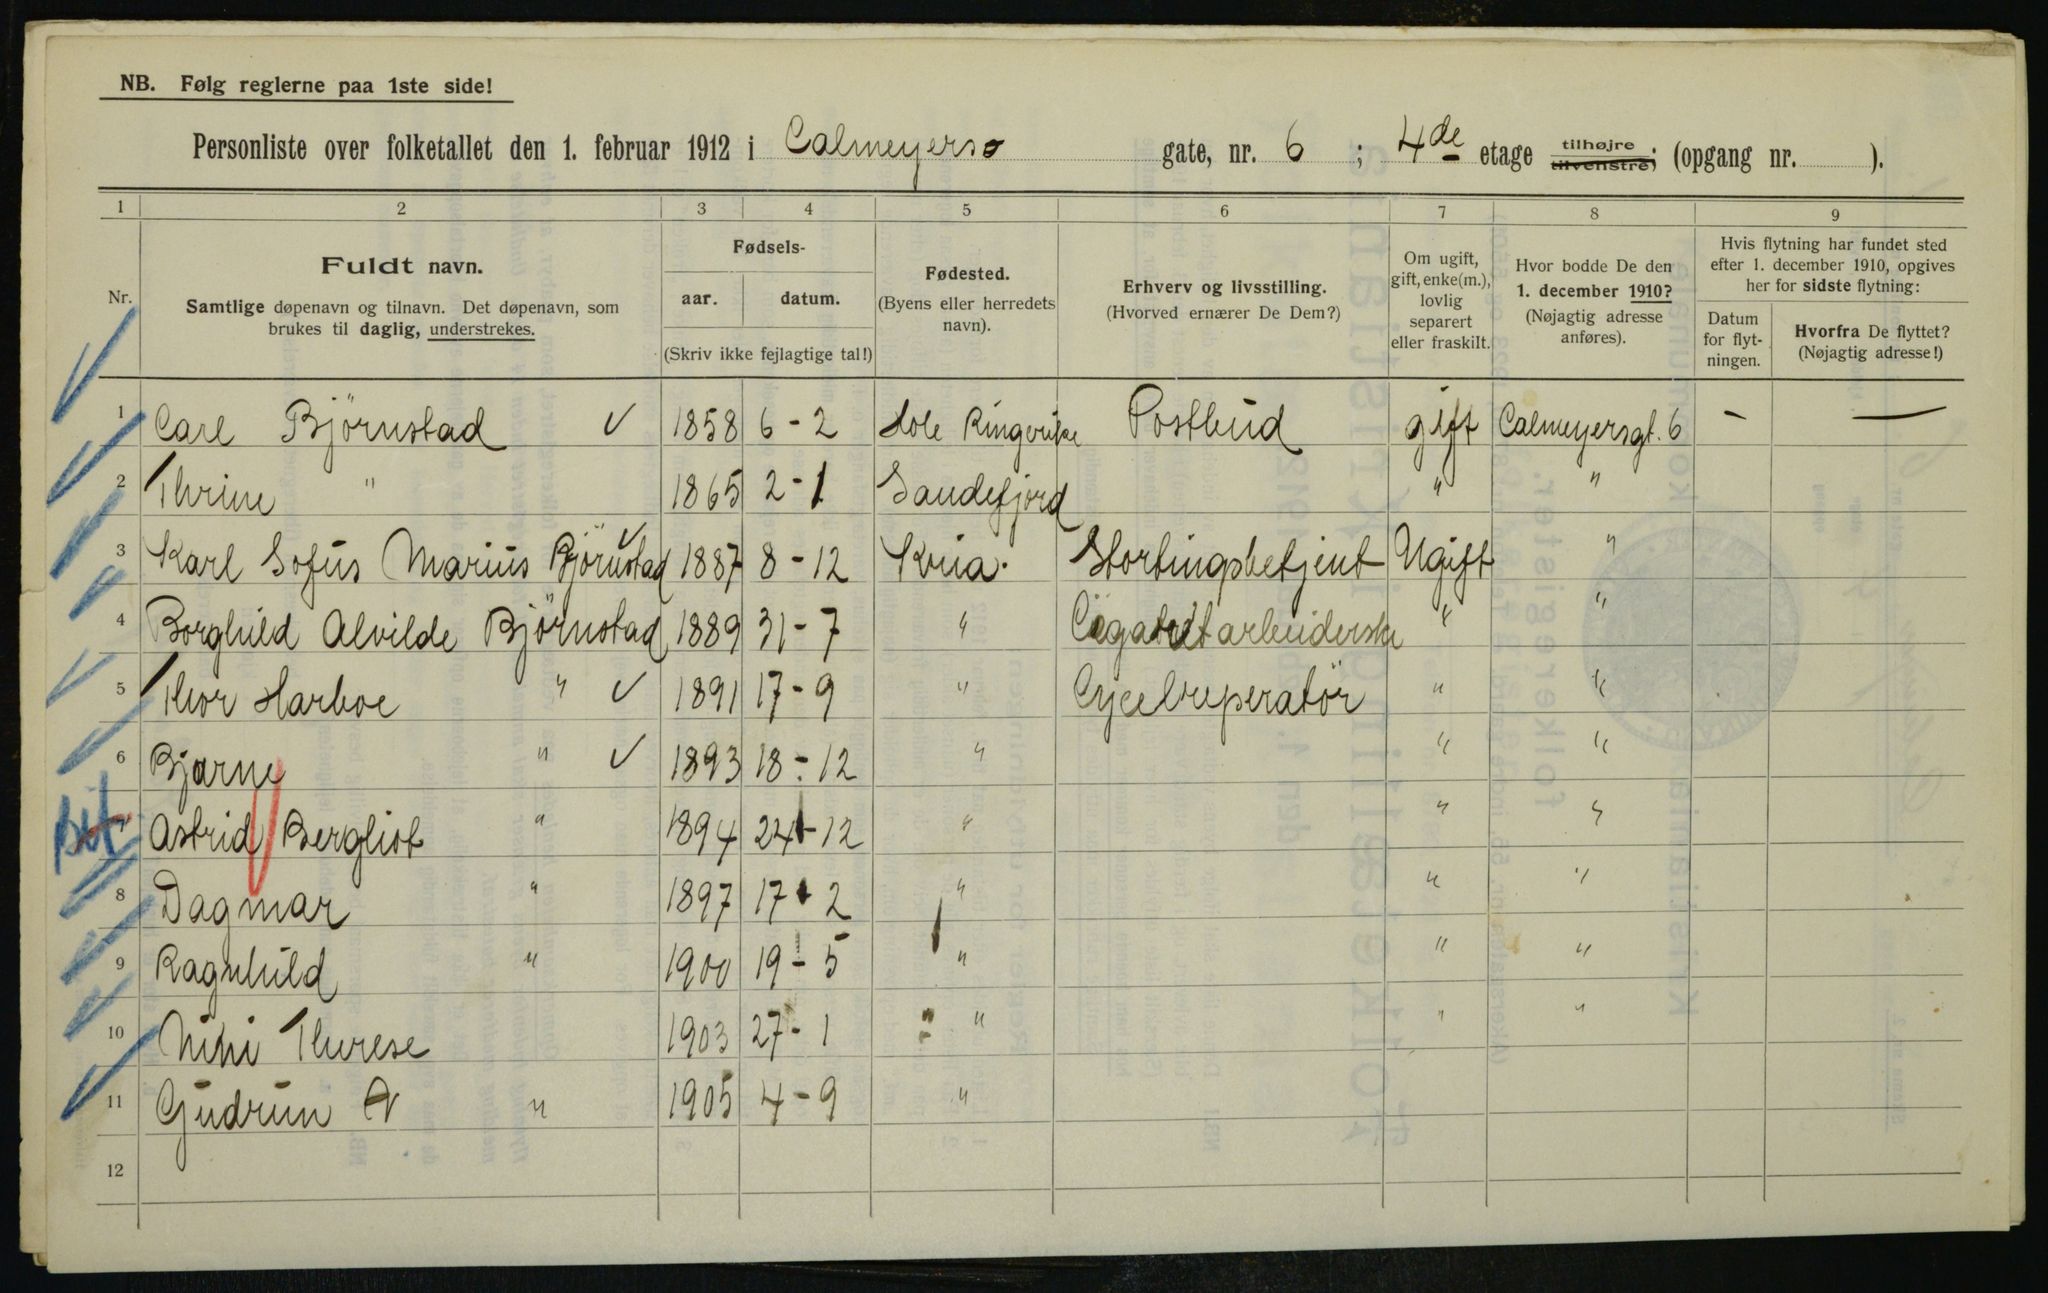 NB. Følg reglerne paa 1ste side!
Personliste over folketallet den 1. februar 1912 i Calmeyers gate, nr. 6 ; 4de etage tilhøjre tilvenstre; (opgang nr. ).
1 2 3 4 5 6 7 8 9
Nr.
Fuldt navn.
Samtlige døpenavn og tilnavn. Det døpenavn, som
brukes til daglig, understrekes.
Fødsels-
aar. datum.
(Skriv ikke fejlagtige tal!)
Fødested.
(Byens eller herredets
navn).
Erhverv og livsstilling.
(Hvorved ernærer De Dem?)
Om ugift,
gift, enke(m.),
lovlig
separert
eller fraskilt.
Hvor bodde De den
1. december 1910?
(Nøjagtig adresse
anføres).
Hvis flytning har fundet sted
efter 1. december 1910, opgives
her for sidste flytning:
Datum
for flyt-
ningen.
Hvorfra De flyttet?
(Nøjagtig adresse!)
1 Carl Björnstad 1858 6-2 Hole Ringerike Postbud gift Calmeyersgt. 6 - —
2 Thrine " 1865 2-1 Sandefjord " "
3 Karl Sofus Marius Björnstad 1887 8-12 Kria. Stortingsbetjent Ugift "
4 Borghild Alvilde Björnstad 1889 31-7 " " "
5 Thor Harboe " 1891 17-9 " Cycelreperatör " "
6 Bjarne " 1893 18-12 " " "
Astrid Bergliot " 1894 24-12 " " "
8 Dagmar " 1897 17-2 " " "
9 Ragnhild " 1900 19-5 " " "
10 Nini Therese 1903 27-1 " " "
11 Gudrun " 1905 4-9 "
12